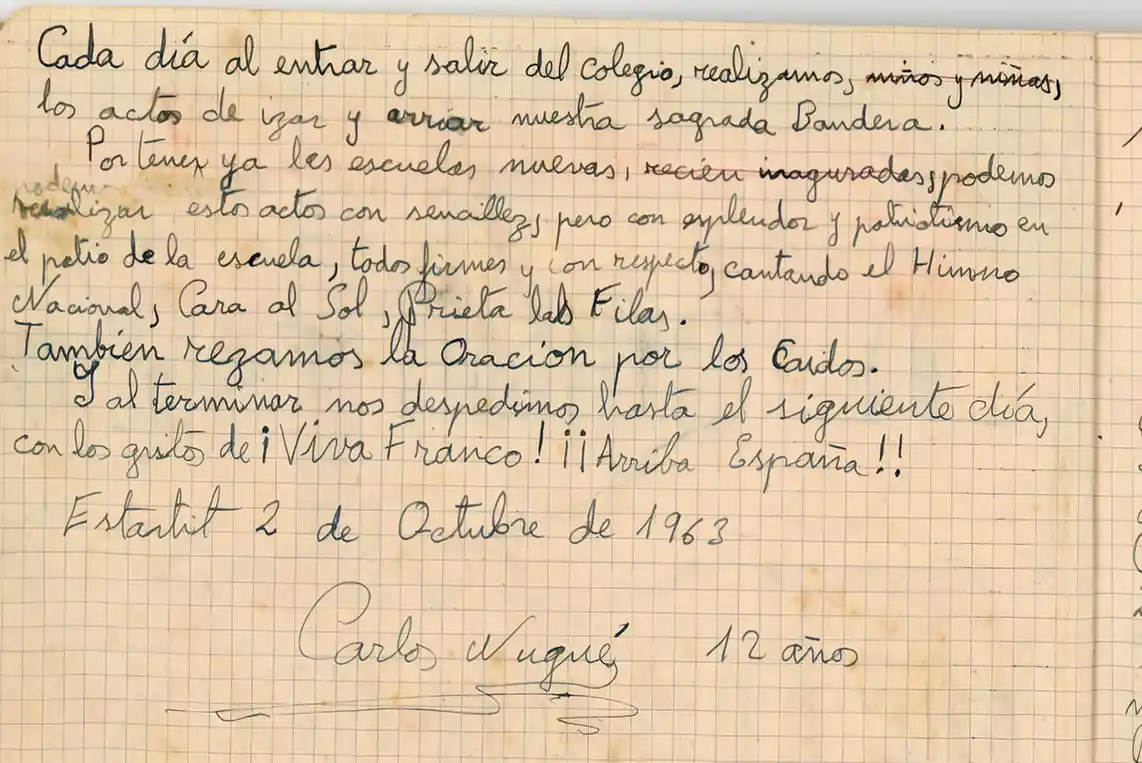 Cada día al entrar y salir del colegio, realizamos, niños y niñas,
los actos de izar y arriar nuestra sagrada Bandera.
Por tener ya las escuelas nuevas, recien inaguradas, podemos
realizar estos actos con sencillez, pero con esplendor y patriotismo en
el patio de la escuela, todos firmes y con respecto, cantando el Himno
Nacional, Cara al Sol, Prieta las Filas.
También rezamos la Oración por los Caidos.
Y al terminar nos despedimos hasta el siguiente día,
con los gritos de ¡Viva Franco! ¡¡Arriba España!!
Estartit 2 de Octubre de 1963
Carlos Nugué 12 años